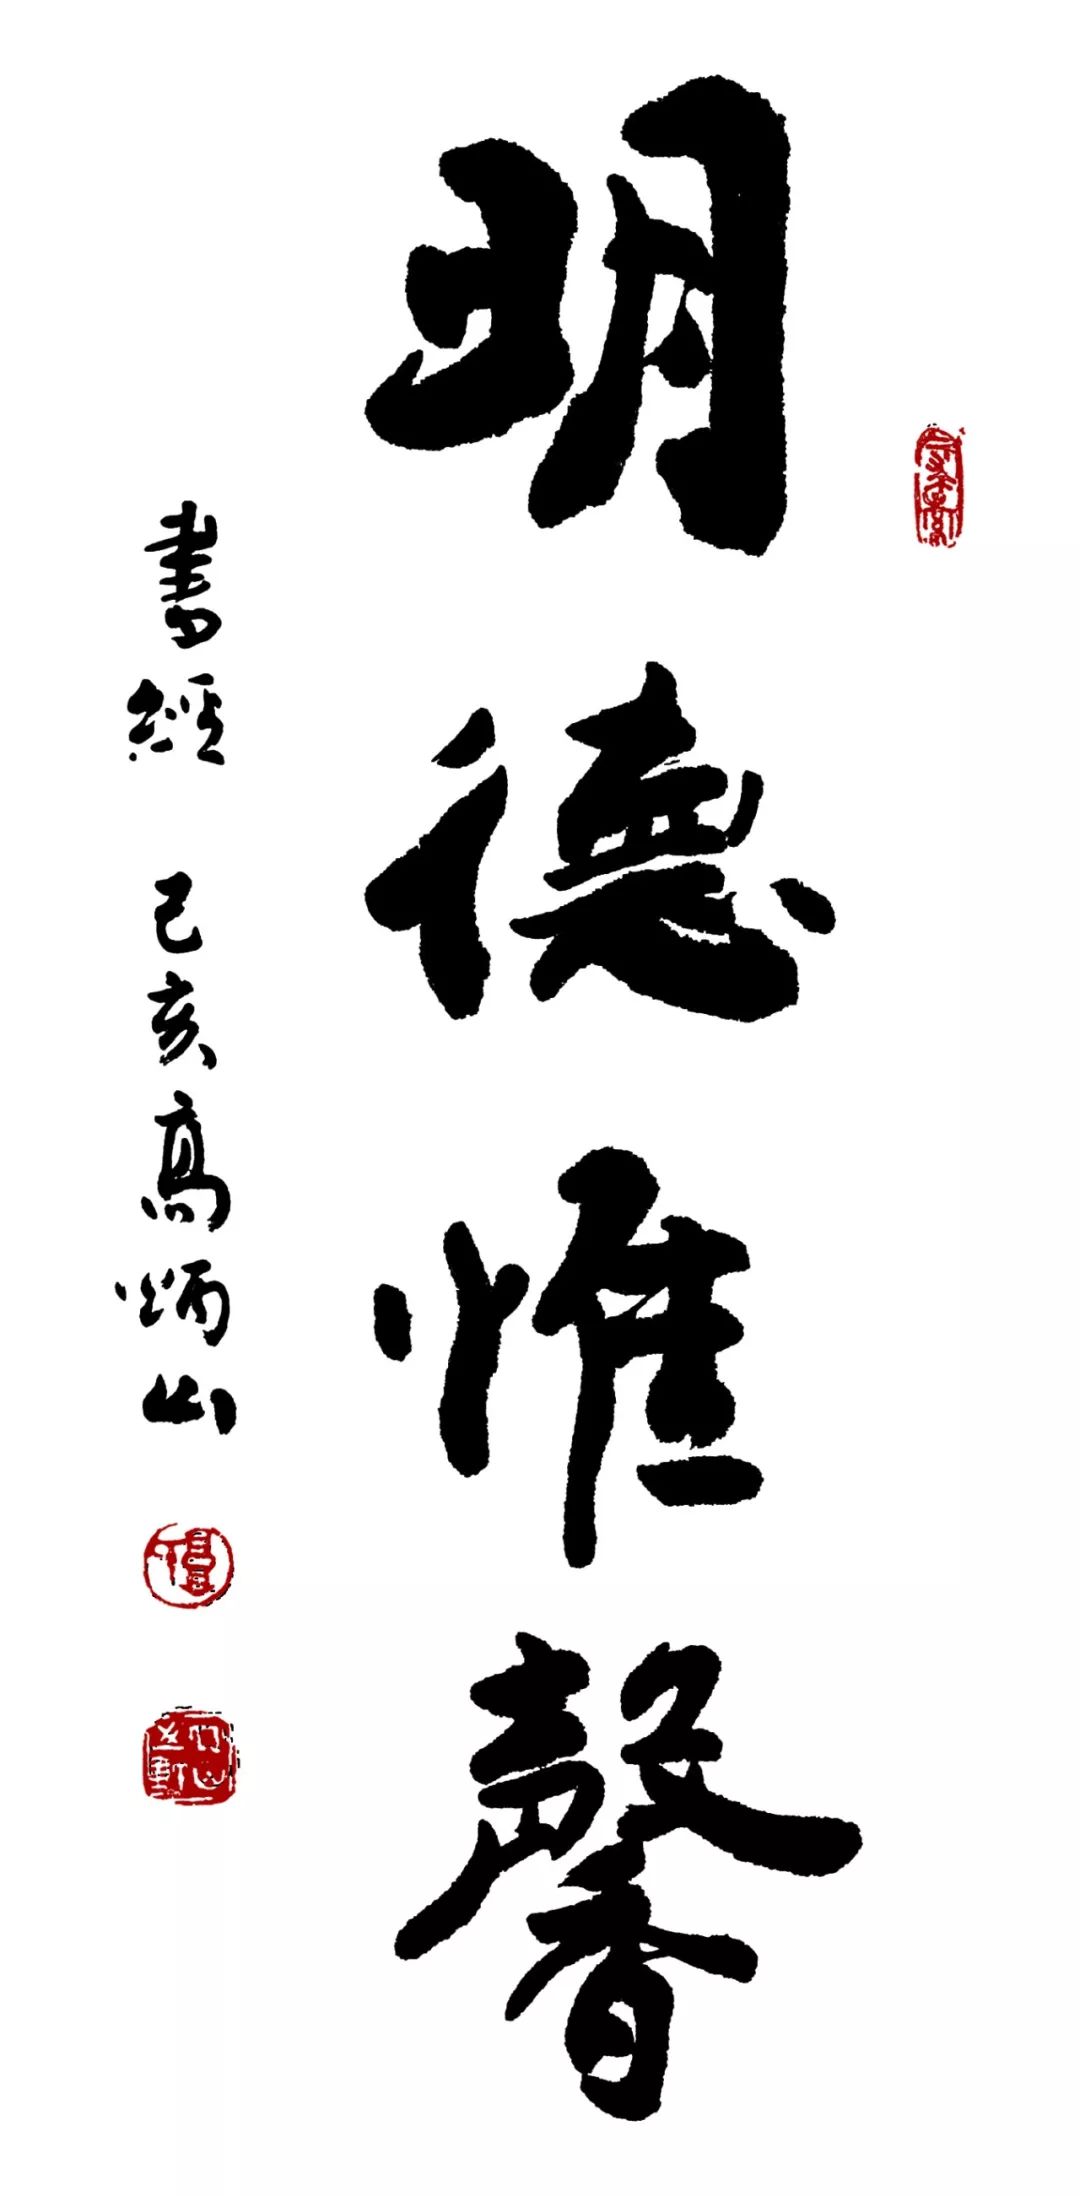 明德惟馨
書經 己亥高炳山